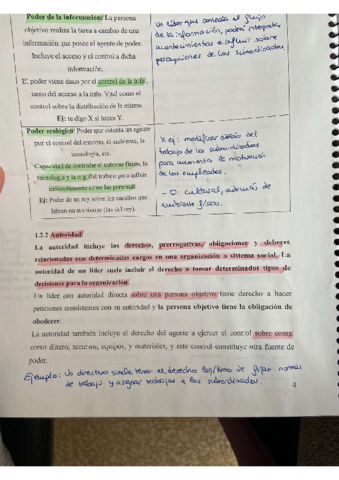 Poder de la información: La persona
objetivo realiza la tarea a cambio de una
información que posee el agente de poder.
Incluye el acceso y el control a dicha
información.
El poder viene único por el control de la info,
tanto del acceso a la info. Vital como al
control sobre la distribución de la misma.
Ej: te digo X si haces Y.
un líder que controla el flujo
de la información, podrá interpretar
acontecimientos e influir sobre
percepciones de los subordinados.
Poder ecológico: Poder que ostenta un agente
por el control del entorno, el ambiente, la
tecnología, etc.
Capacidad de controlar el entorno físico, la
tecnología y la org del trabajo para influir
indirectamente sobre las personas.
Ej: Poder de un rey sobre los vasallos que
labran en sus tierras (las del rey).
X ej: modificar diseño del
trabajo de los subordinados
para aumentar la motivación
de los empleados.
cultural, además de
ambiente físico.
1.2.2 Autoridad:
La autoridad incluye los derechos, prerrogativas, obligaciones y deberes
relacionados con determinados cargos en una organización o sistema social. La
autoridad de un líder suele incluir el derecho a tomar determinados tipos de
decisiones para la organización.
Un líder con autoridad directa sobre una persona objetivo tiene derecho a hacer
peticiones consistentes con su autoridad y la persona objetivo tiene la obligación de
obedecer.
La autoridad también incluye el derecho del agente a ejercer el control sobre cosas,
como dinero, recursos, equipos, y materiales, y este control constituye otra fuente de
poder.
4
Ejemplo: Un directivo suele tener el derecho legítimo de fijar normas
de trabajo y asignar trabajos a los subordinados.